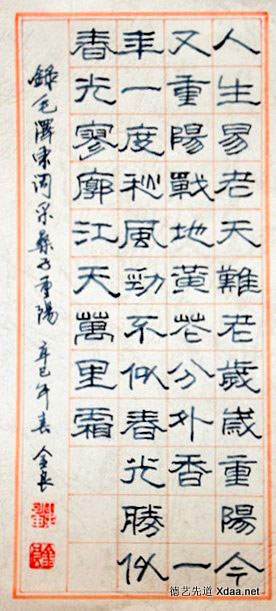 人生易老天難老歲歲重陽今
又重陽戰地黃花分外香一
年一度秋風勁不似春光勝似
春光寥廓江天萬里霜
錄毛澤東詞采桑子重陽 辛巳年春 金良
德艺先道 Xdaa.net